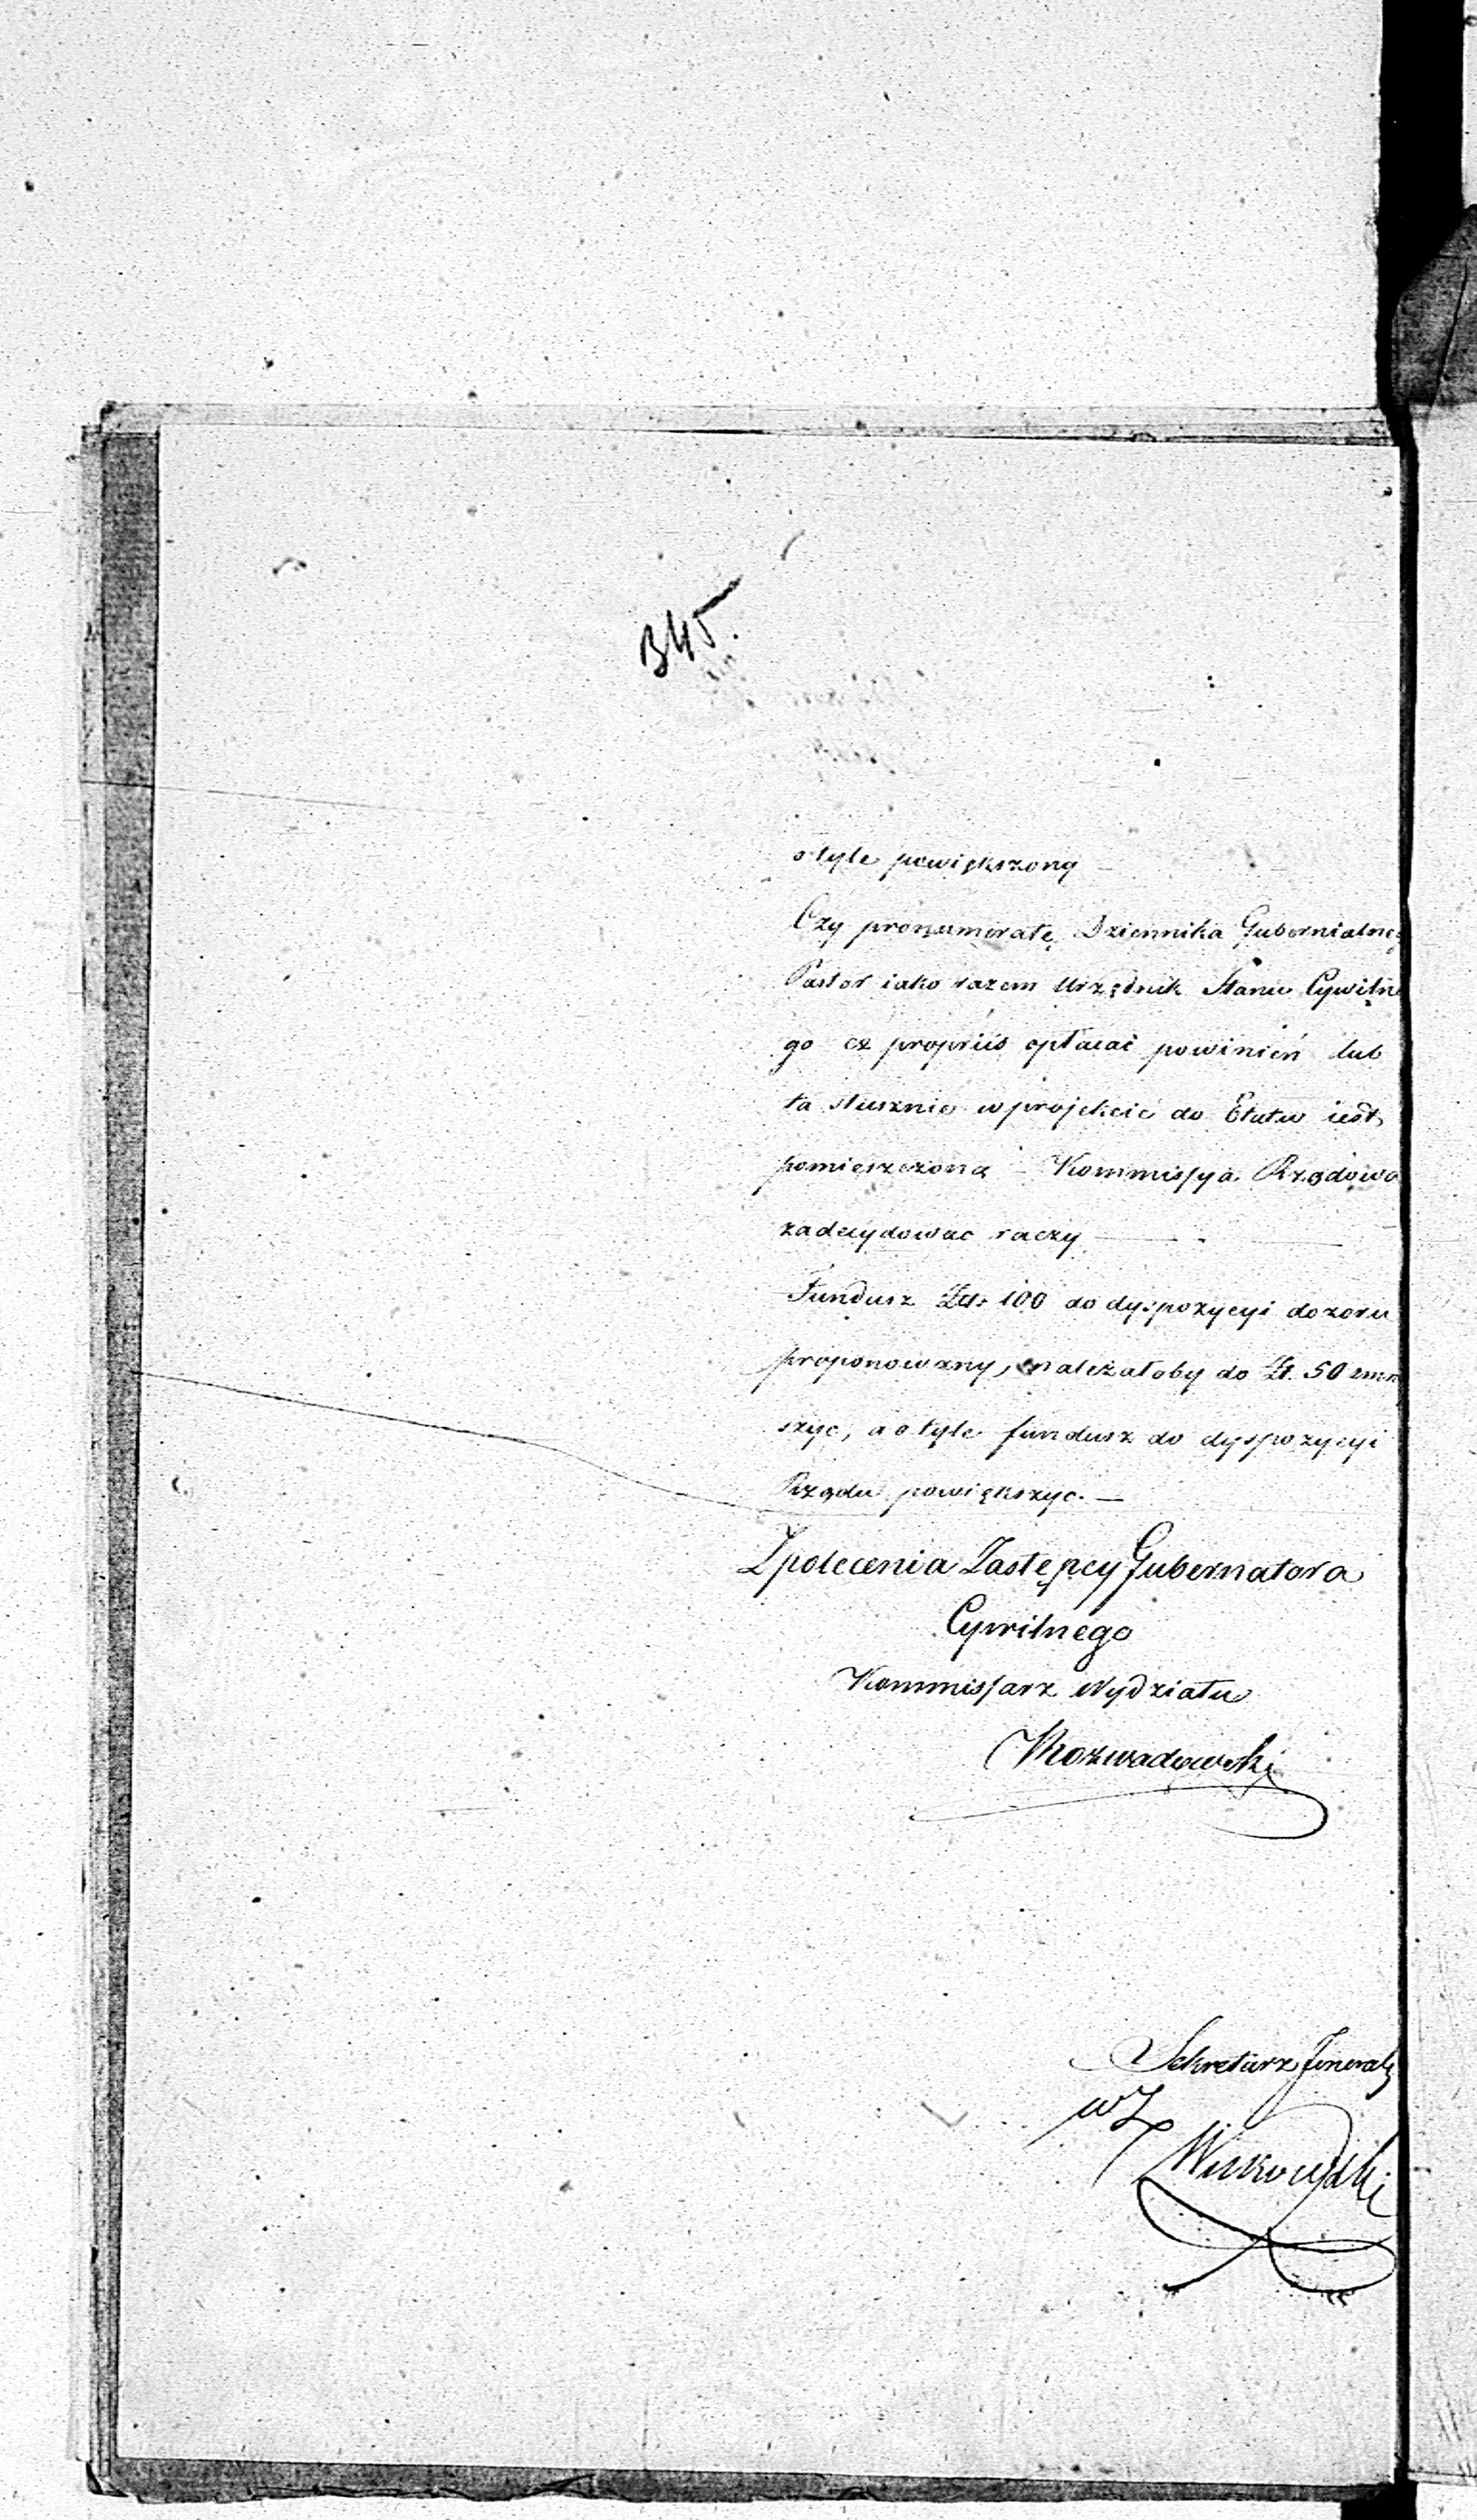 345.
o tyle powiększony —
Czy pronumeratę Dziennika Gubernialneg
Pastor iako razem Urzędnik Stanu Cywilne
go ex propriis opłacać powinień lub
ta słusznie w projekcie do Etatu iest
pomieszczoną — Kommissya Rządowa
zadecydować raczy —
Fundusz Złr 100 do dyspozycyi dozoru
proponowany, należałoby do Zł. 50 zmn
szyc, a o tyle fundusz do dyspozycyi
Rządu powiększyc. —
Zpolecenia Zastępcy Gubernatora
Cywilnego
Kommissarz Wydziału
Rozwadowski
Sekretarz Jeneralny
wZ